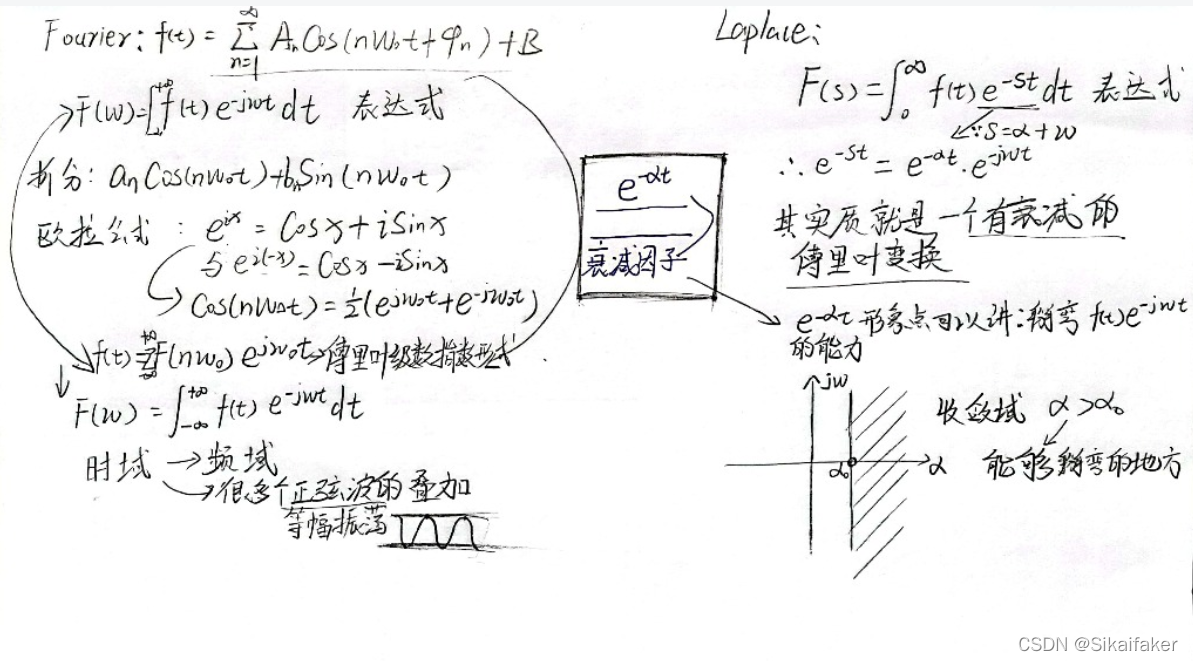 Fourier: f(t) = ∞ Σ n=1 AₙCos(nw₀t+φₙ)+B
F(w)=∫f(t) e-jwt dt 表达式
拆分: aₙCos(nw₀t)+bₙSin(nw₀t)
欧拉公式 : eix = Cosx+iSinx
与ei(-x)=Cosx-iSinx
Cos(nw₀t)=½(ejw₀t+e-jw₀t)
f(t)=+∞ Σ -∞ F(nw₀) ejw₀t→傅里叶级数指数形式
F(w) = ∫+∞ -∞ f(t) e-jwt dt
时域 → 频域
很多个正弦波的叠加
等幅振荡
e-αt
衰减因子
Laplace:
F(s)=∫∞ 0 f(t)e-St dt 表达式
∵S=α+w
∴e-St = e-αt·e-jwt
其实质就是一个有衰减的
傅里叶变换
e-αt 形象点可以讲:掰弯 f(t)e-jwt
的能力
jw
收敛域 α>α₀
α₀
α
能够掰弯的地方
CSDN @Sikaifaker